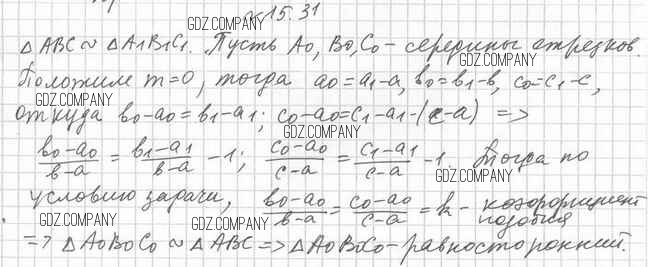 №15.31
GDZ.COMPANY
△ABC ~ △A₁B₁C₁. Пусть A₀, B₀, C₀ - середины отрезков.
GDZ.COMPANY
Положим m=0, тогда a₀=a₁-a, b₀=b₁-b, c₀=c₁-c,
GDZ.COMPANY
GDZ.COMPANY
откуда b₀-a₀=b₁-a₁; c₀-a₀=c₁-a₁-(c-a) =>
GDZ.COMPANY
(b₀-a₀)/(b-a) = (b₁-a₁)/(b-a) - 1; (c₀-a₀)/(c-a) = (c₁-a₁)/(c-a) - 1. Тогда по
GDZ.COMPANY
условию задачи, (b₀-a₀)/(b-a) = (c₀-a₀)/(c-a) = k - коэффициент
подобия
GDZ.COMPANY
GDZ.COMPANY
=> △A₀B₀C₀ ~ △ABC => △A₀B₀C₀ - равносторонний.